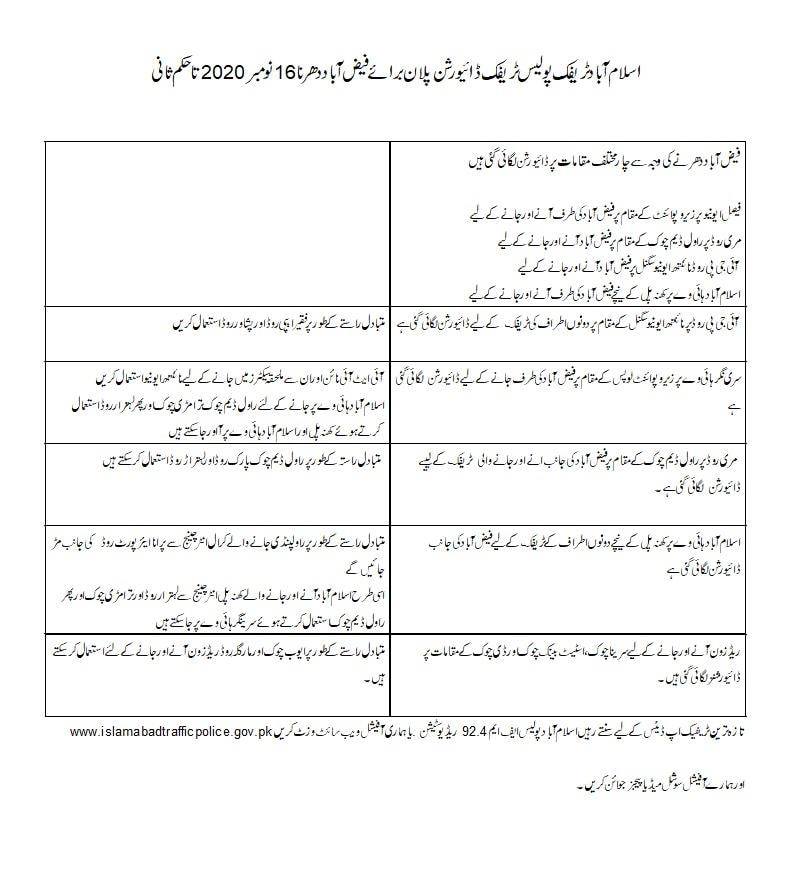 اسلام آباد ٹریفک پولیس ٹریفک ڈائیورشن پلان برائے فیض آباد دھرنا 16 نومبر 2020 تا حکم ثانی
فیض آباد دھرنے کی وجہ سے چار مختلف مقامات پر ڈائیورشن لگائی گئی ہیں
فیصل ایونیو پر زیرو پوائنٹ کے مقام پر فیض آباد کی طرف آنے اور جانے کے لیے
مری روڈ پر راول ڈیم چوک کے مقام پر فیض آباد آنے اور جانے کے لیے
آئی جی پی روڈ نائنتھ ایونیو سگنل پر فیض آباد آنے اور جانے کے لیے
اسلام آباد ہائی وے پر کھنہ پل کے نیچے فیض آباد کی طرف آنے اور جانے کے لیے
آئی جی پی روڈ پر نائنتھ ایونیو سگنل کے مقام پر دونوں اطراف کی ٹریفک کے لیے ڈائیورشن لگائی گئی ہے
متبادل راستے کے طور پر فقیر ایپی روڈ اور پشاور روڈ استعمال کریں
سری نگر ہائی وے پر زیرو پوائنٹ لوپس کے مقام پر فیض آباد کی طرف جانے کے لیے ڈائیورشن لگائی گئی
ہے
آئی ایٹ آئی نائن اور ان سے ملحقہ سیکٹرز میں جانے کے لیے نائنتھ ایونیو استعمال کریں
اسلام آباد ہائی وے پر جانے کے لئے راول ڈیم چوک ترامڑی چوک اور پھر لہتراڑ روڈ استعمال
کرتے ہوئے کھنہ پل اور اسلام آباد ہائی وے پر آ اور جا سکتے ہیں
مری روڈ پر راول ڈیم چوک کے مقام پر فیض آباد کی جانب انے اور جانے والی ٹریفک کے لیے
ڈائیورشن لگائی گئی ہے ۔
متبادل راستہ کے طور پر راول ڈیم چوک پارک روڈ اور لہتراڑ روڈ استعمال کر سکتے ہیں
اسلام آباد ہائی وے پر کھنہ پل کے نیچے دونوں اطراف کے ٹریفک کے لیے فیض آباد کی جانب
ڈائیورشن لگائی گئی ہے
متبادل راستے کے طور پر راولپنڈی جانے والے کرال انٹرچینج سے پرانا ایئر پورٹ روڈ کی جانب مڑ
جائیں گے
اسی طرح اسلام آباد آنے اور جانے والے کھنہ پل انٹر چینج سے لہتراڑ روڈ اور ترامڑی چوک اور پھر
راول ڈیم چوک ستعمال کرتے ہوئے سرینگر ہائی وے پر جا سکتے ہیں
ریڈ زون آنے اور جانے کے لیے سرینا چوک، اسٹیٹ بینک چوک اور ڈی چوک کے مقامات پر
ڈائیورشنز لگائی گئی ہیں ۔
متبادل راستے کے طور پر ایوب چوک اور مارگلہ روڈ ریڈ زون آنے اور جانے کے لئے استعمال کر سکتے
ہیں ۔
تازہ ترین ٹریفیک اپ ڈیٹس کے لیے سنتے رہیں اسلام آباد پولیس ایف ایم 92.4 ریڈیو سٹیشن . یا ہماری آفیشل ویب سائٹ وزٹ کریں www.islamabadtrafficpolice.gov.pk
اور ہمارے آفیشل سوشل میڈیا پیجز جوائن کریں ۔